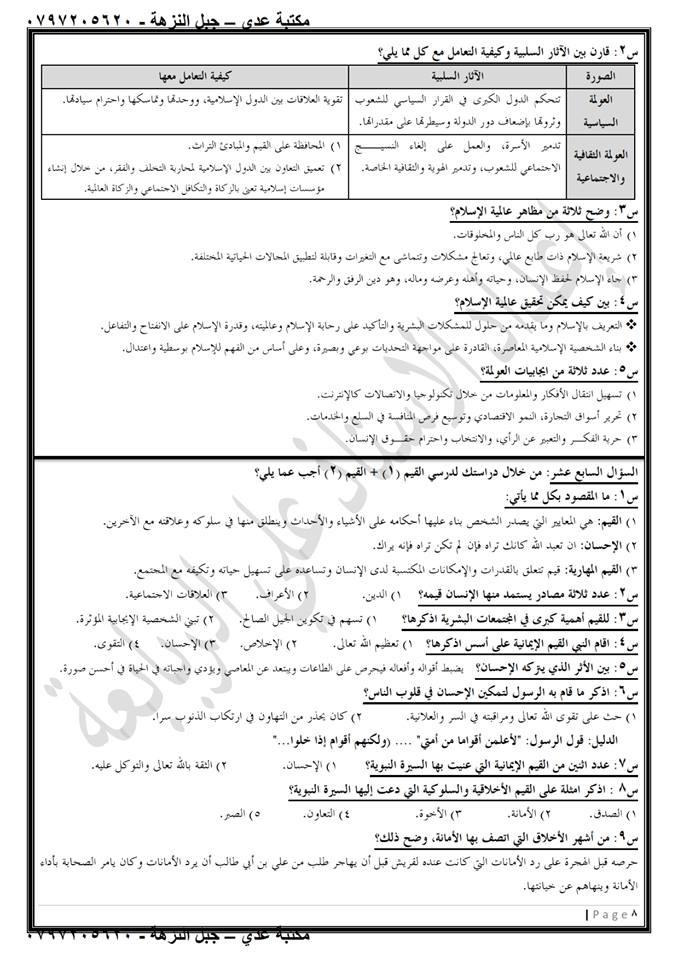 مكتبة عدي – جبل النزهة - ٠٧٩٧٢٠٥٦٢٠
س٢: قارن بين الآثار السلبية وكيفية التعامل مع كل مما يلي؟
الصورة الآثار السلبية كيفية التعامل معها
العولمة السياسية تتحكم الدول الكبرى في القرار السياسي للشعوب تقوية العلاقات بين الدول الإسلامية، ووحدتها وتماسكها واحترام سيادتها.
وثروتها بإضعاف دور الدولة وسيطرتها على مقدراتها.
العولمة الثقافية والاجتماعية تدمير الأسرة، والعمل على إلغاء النسيـــــج ١) المحافظة على القيم والمبادئ التراث.
الاجتماعي للشعوب، وتدمير الهوية والثقافية الخاصة. ٢) تعميق التعاون بين الدول الإسلامية لمحاربة التخلف والفقر، من خلال إنشاء
مؤسسات إسلامية تعنى بالزكاة والتكافل الاجتماعي والزكاة العالمية.
س٣: وضح ثلاثة من مظاهر عالمية الإسلام؟
١) أن الله تعالى هو رب كل الناس والمخلوقات.
٢) شريعة الإسلام ذات طابع عالمي، وتعالج مشكلات وتتماشى مع التغيرات وقابلة لتطبيق المجالات الحياتية المختلفة.
٣) جاء الإسلام لحفظ الإنسان، وحياته وأهله وعرضه وماله، وهو دين الرفق والرحمة.
س٤: بين كيف يمكن تحقيق عالمية الإسلام؟
❖ التعريف بالإسلام وما يقدمه من حلول للمشكلات البشرية والتأكيد على رحابة الإسلام وعالميته، وقدرة الإسلام على الانفتاح والتفاعل.
❖ بناء الشخصية الإسلامية المعاصرة، القادرة على مواجهة التحديات بوعي وبصيرة، وعلى أساس من الفهم للإسلام بوسطية واعتدال.
س٥: عدد ثلاثة من ايجابيات العولمة؟
١) تسهيل انتقال الأفكار والمعلومات من خلال تكنولوجيا والاتصالات كالإنترنت.
٢) تحرير أسواق التجارة، النمو الاقتصادي وتوسيع فرص المنافسة في السلع والخدمات.
٣) حرية الفكـــر والتعبير عن الرأي، والانتخاب واحترام حقـــوق الإنسان.
السؤال السابع عشر: من خلال دراستك لدرسي القيم (١) + القيم (٢) أجب عما يلي؟
س١: ما المقصود بكل مما يأتي:
١) القيم: هي المعايير التي يصدر الشخص بناء عليها أحكامه على الأشياء والأحداث وينطلق منها في سلوكه وعلاقته مع الآخرين.
٢) الإحسان: ان تعبد الله كانك تراه فإن لم تكن تراه فإنه يراك.
٣) القيم المهارية: قيم تتعلق بالقدرات والإمكانات المكتسبة لدى الإنسان وتساعده على تسهيل حياته وتكيفه مع المجتمع.
س٢: عدد ثلاثة مصادر يستمد منها الإنسان قيمه؟ ١) الدين. ٢) الأعراف. ٣) العلاقات الاجتماعية.
س٣: للقيم أهمية كبرى في المجتمعات البشرية اذكرها؟ ١) تسهم في تكوين الجيل الصالح. ٢) تبني الشخصية الإيجابية المؤثرة.
س٤: اقام النبي القيم الإيمانية على أسس اذكرها؟ ١) تعظيم الله تعالى. ٢) الإخلاص. ٣) الإحسان. ٤) التقوى.
س٥: بين الأثر الذي يتركه الإحسان؟ يضبط أقواله وأفعاله فيحرص على الطاعات ويبتعد عن المعاصي ويؤدي واجباته في الحياة في أحسن صورة.
س٦: اذكر ما قام به الرسول لتمكين الإحسان في قلوب الناس؟
١) حث على تقوى الله تعالى ومراقبته في السر والعلانية. ٢) كان يحذر من التهاون في ارتكاب الذنوب سرا.
الدليل: قول الرسول: "لأعلمن أقواما من أمتي" .... (ولكنهم أقوام إذا خلوا..."
س٧: عدد اثنين من القيم الإيمانية التي عنيت بها السيرة النبوية؟ ١) الإحسان. ٢) الثقة بالله تعالى والتوكل عليه.
س٨ : اذكر امثلة على القيم الأخلاقية والسلوكية التي دعت إليها السيرة النبوية؟
١) الصدق. ٢) الأمانة. ٣) الأخوة. ٤) التعاون. ٥) الصبر.
س٩: من أشهر الأخلاق التي اتصف بها الأمانة، وضح ذلك؟
حرصه قبل الهجرة على رد الأمانات التي كانت عنده لقريش قبل أن يهاجر طلب من علي بن أبي طالب أن يرد الأمانات وكان يامر الصحابة بأداء
الأمانة وينهاهم عن خيانتها.
| P a g e ٨
مكتبة عدي – جبل النزهة - ٠٧٩٧٢٠٥٦٢٠